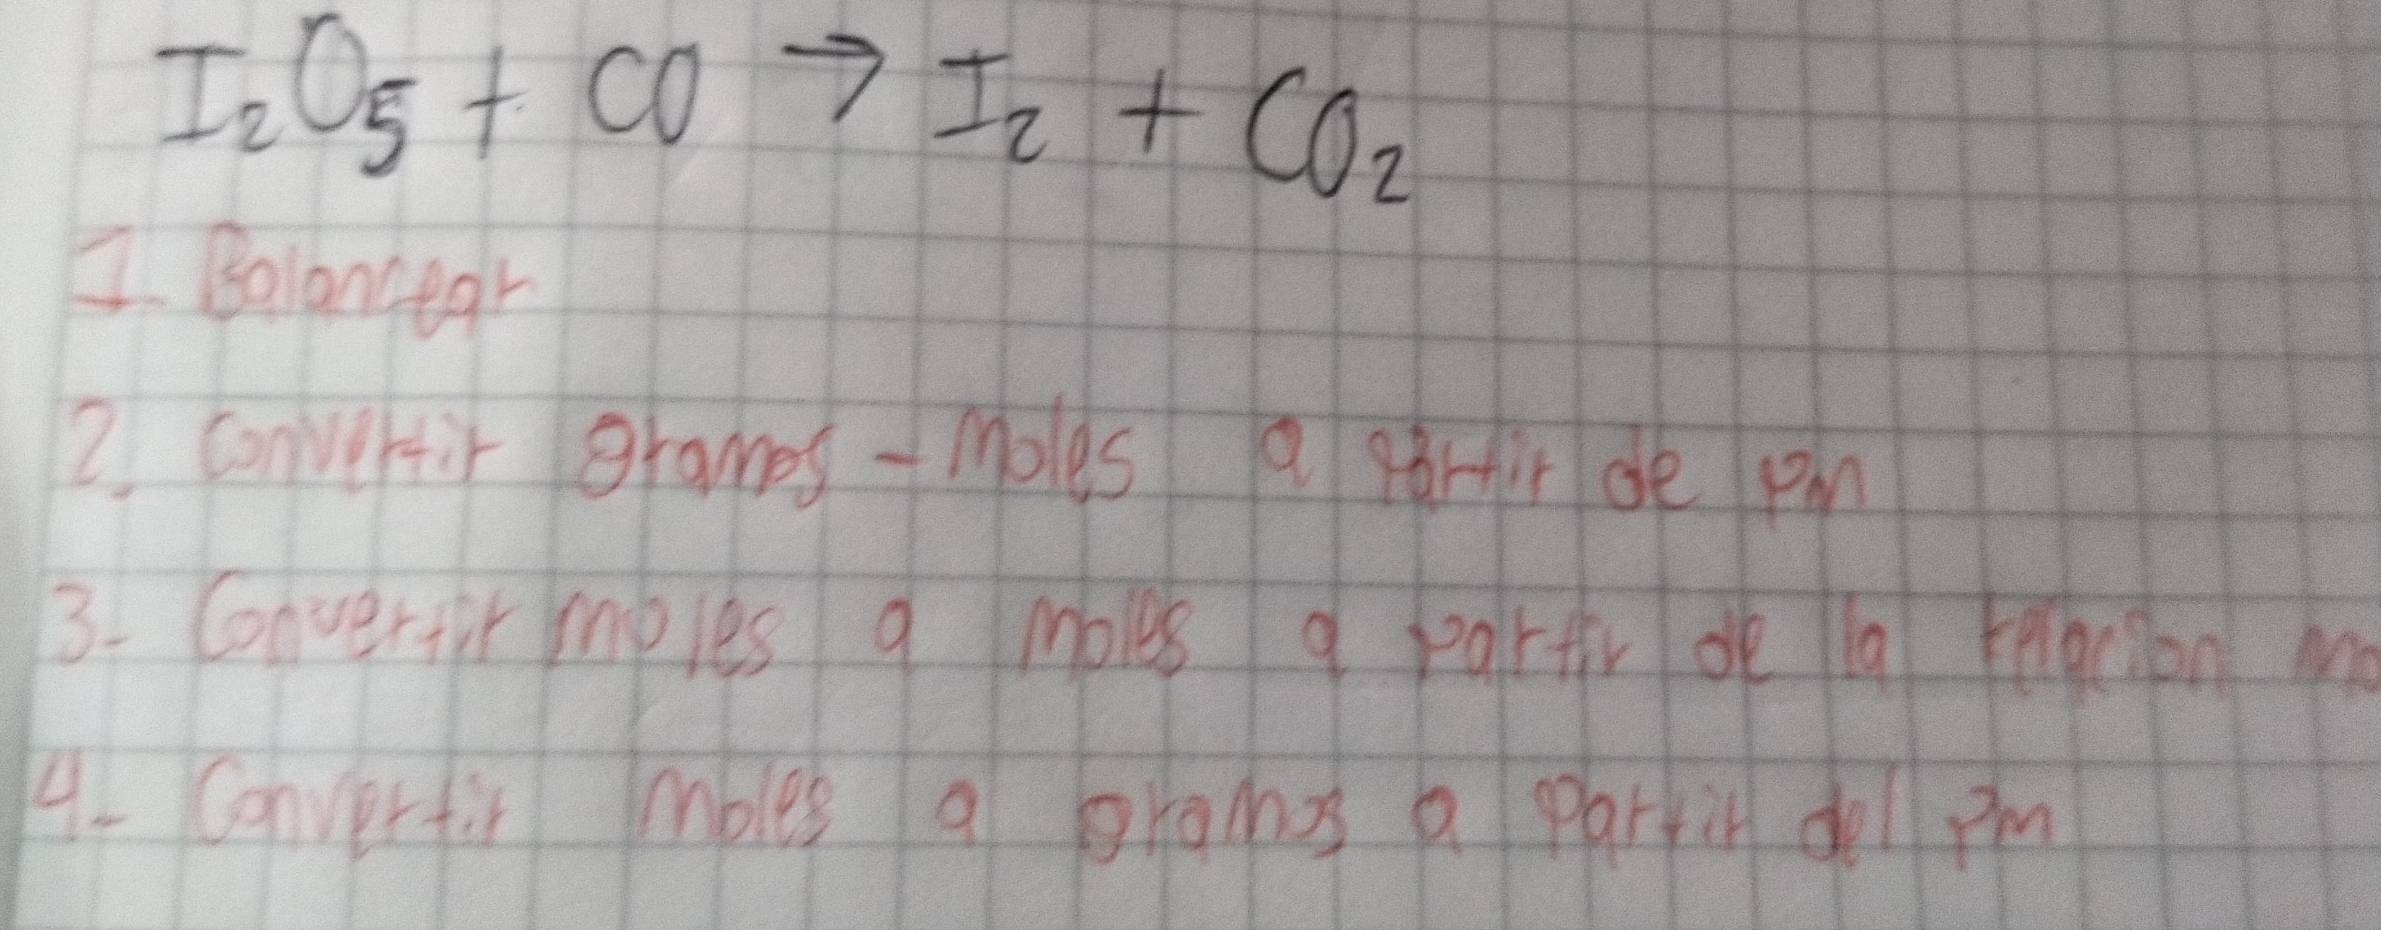 I₂O₅ + CO → I₂ + CO₂
1. Balancear
2. Convertir gramos - moles a partir de pm
3- Convertir moles a moles a partir de la relacion mo
4- Convertir moles a gramos a partir del pm